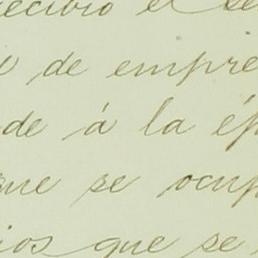 recibio el se
o de empre
de á la ép
que se ocup
ios que se